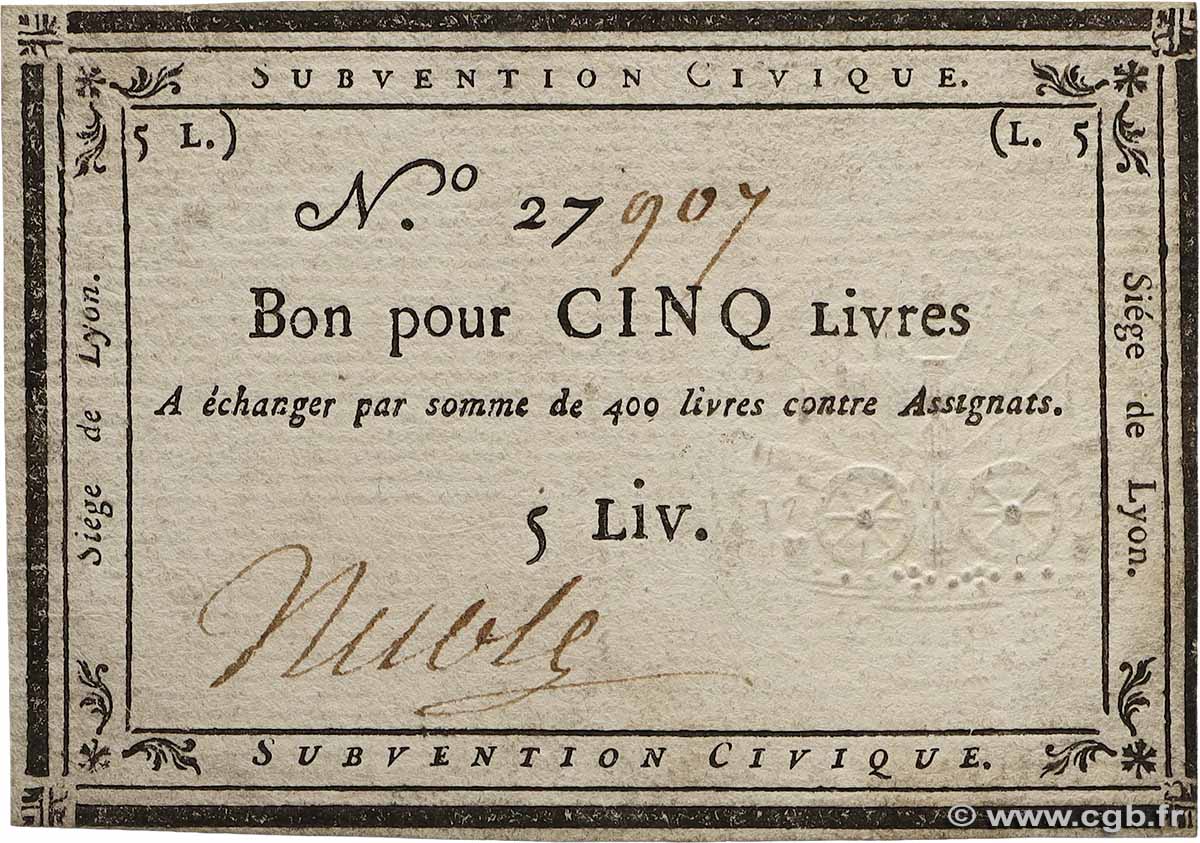 SUBVENTION CIVIQUE.
5 L.) (L. 5
N.º 27907
Bon pour CINQ Livres
A échanger par somme de 400 livres contre Assignats.
5 Liv.
SUBVENTION CIVIQUE.
Siége de Lyon.
Siége de Lyon.
© www.cgb.fr